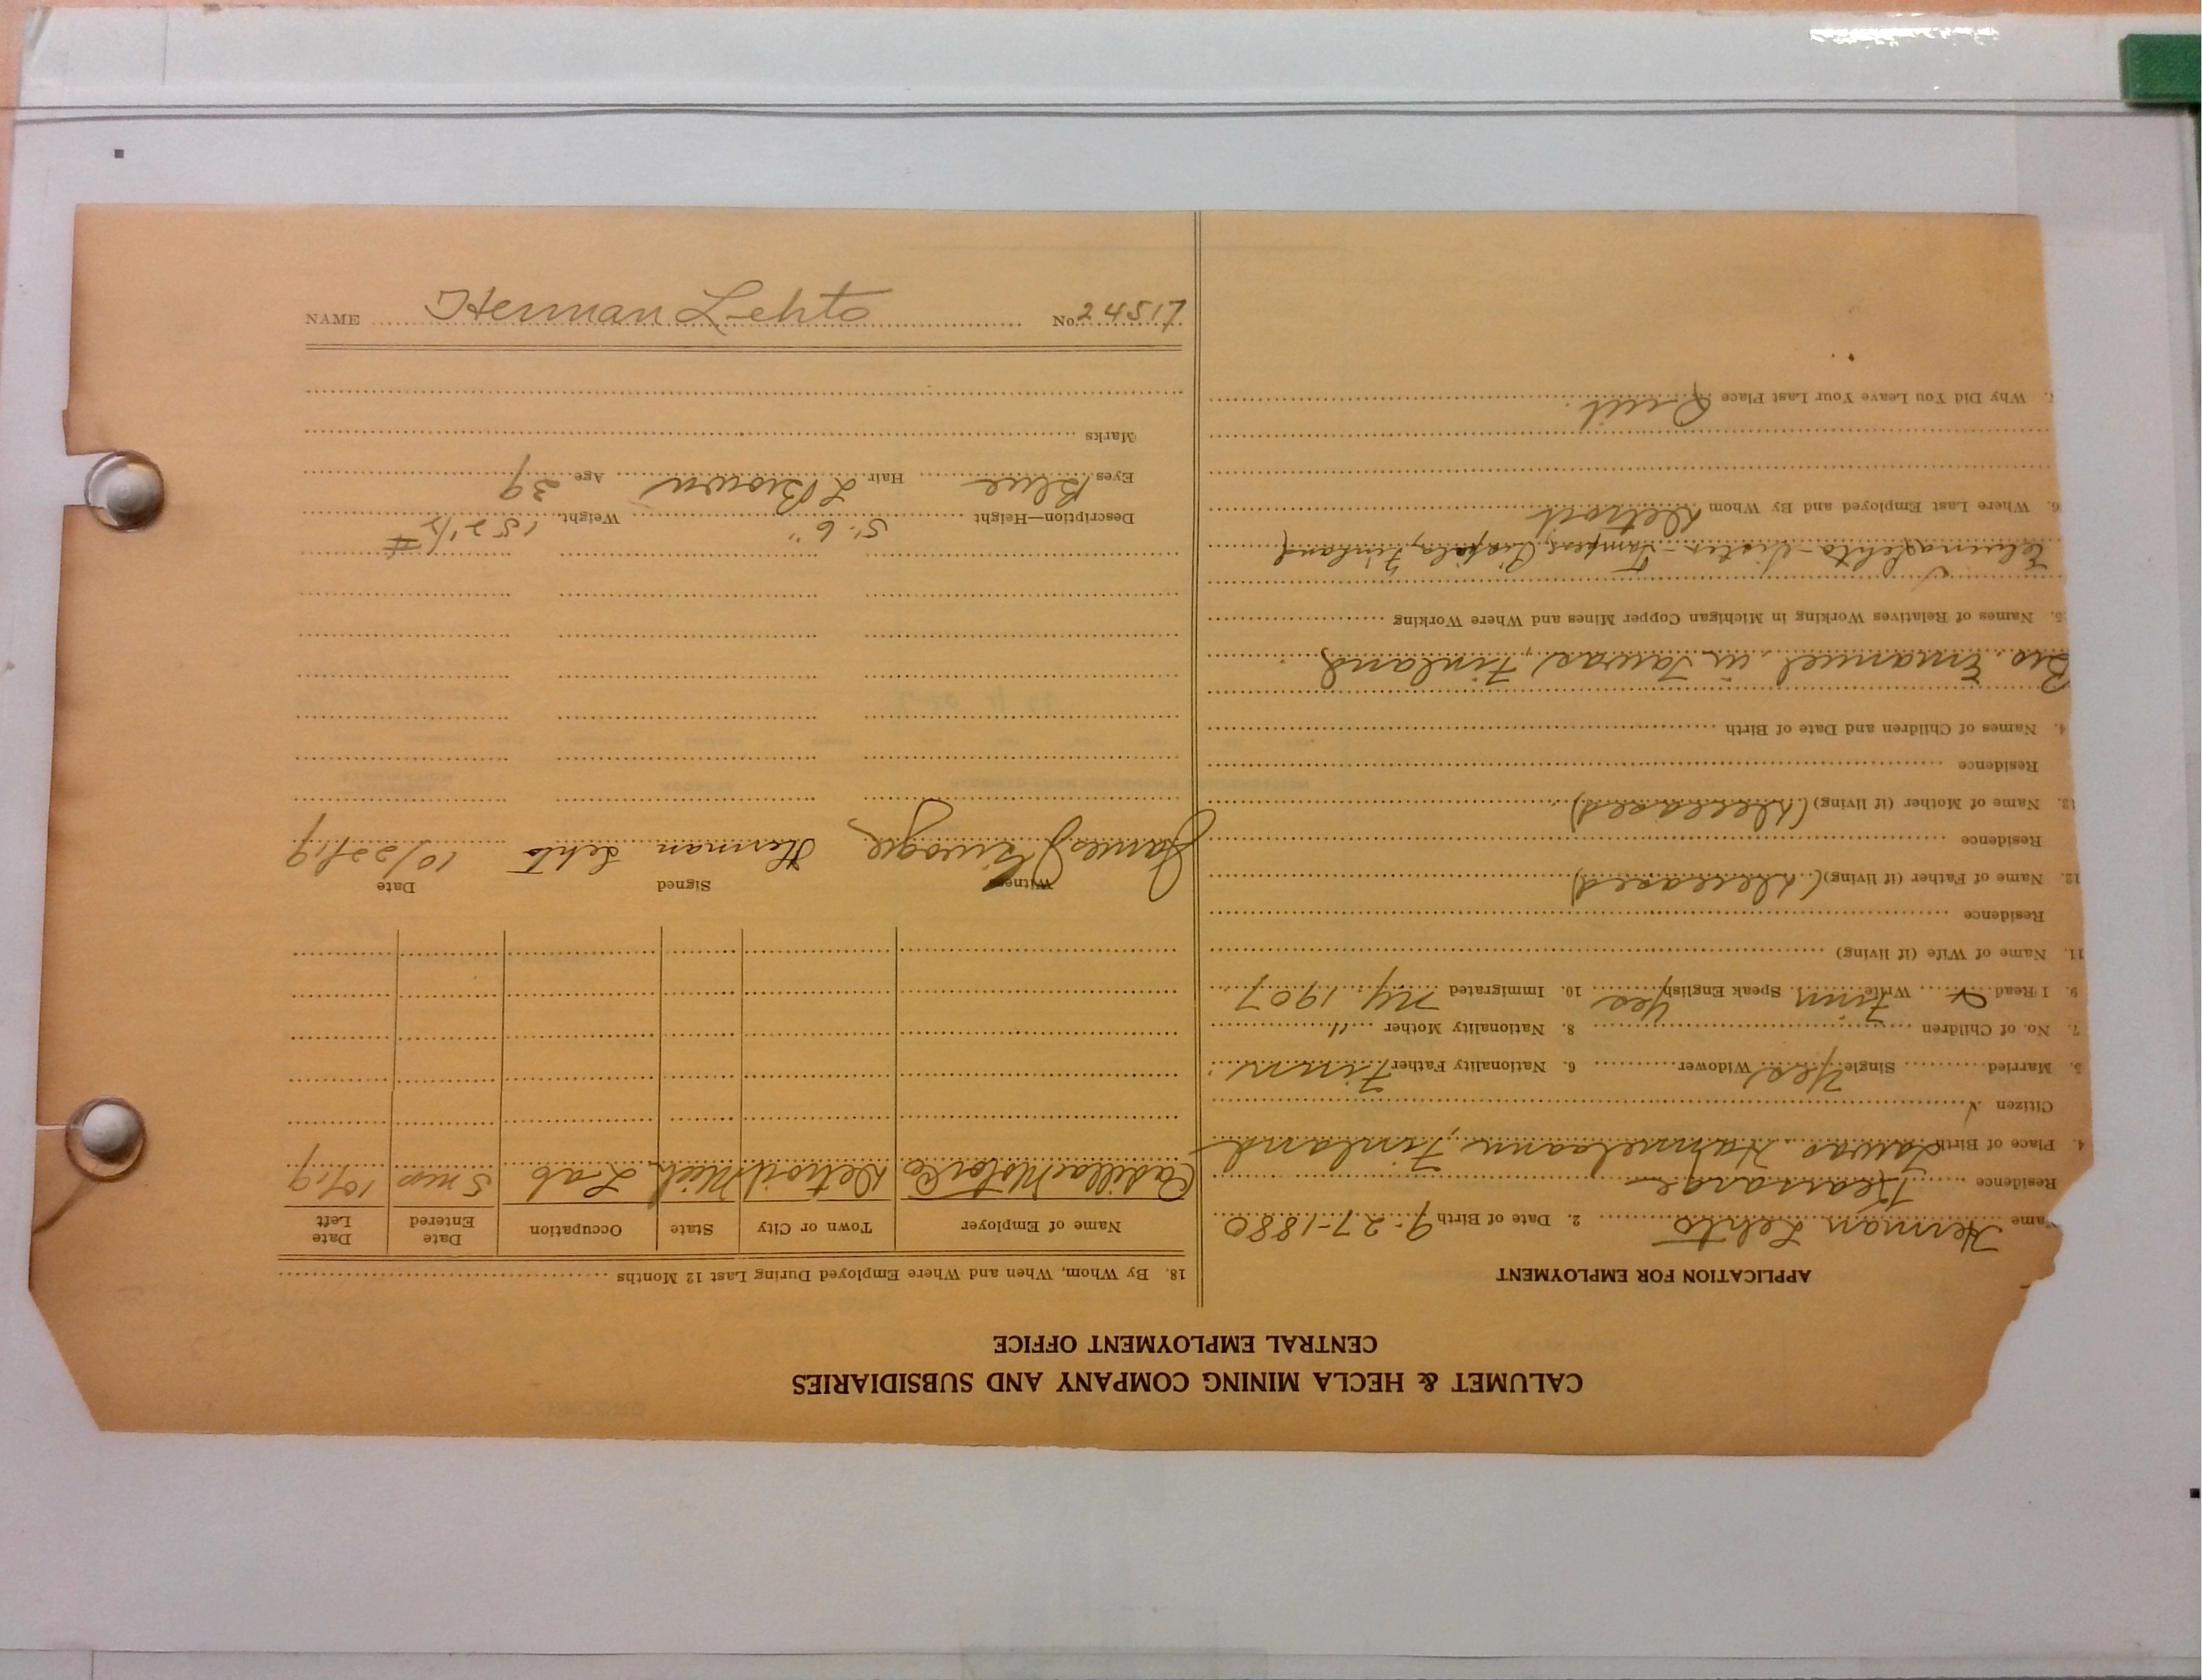 CALUMET & HECLA MINING COMPANY AND SUBSIDIARIES
CENTRAL EMPLOYMENT OFFICE
APPLICATION FOR EMPLOYMENT
Name Herman Lehto 2. Date of Birth 9-27-1880
Residence Kearsarge
4. Place of Birth Finland
Citizen
5. Married Single Yes Widower 6. Nationality Father Finn
7. No. of Children 8. Nationality Mother "
9. I Read Write Finn Speak English Yes 10. Immigrated NY 1907
11. Name of Wife (if living)
Residence
12. Name of Father (if living) (Deceased)
Residence
13. Name of Mother (if living) (Deceased)
Residence
4. Names of Children and Date of Birth
Bro. Emanuel in Finland
5. Names of Relatives Working in Michigan Copper Mines and Where Working
Lehto - Sister - Finland
6. Where Last Employed and By Whom Detroit
7. Why Did You Leave Your Last Place Quit.
18. By Whom, When and Where Employed During Last 12 Months
Name of Employer Town or City State Occupation Date Entered Date Left
Cadillac Motor Co Detroit Mich. Lab 5 mos 10/19
Witness Signed Date
James Herman Lehto 10/22/19
Description—Height 5' 6" Weight 152 1/2 #
Eyes Blue Hair L Brown Age 39
Marks
NAME Herman Lehto No. 24517